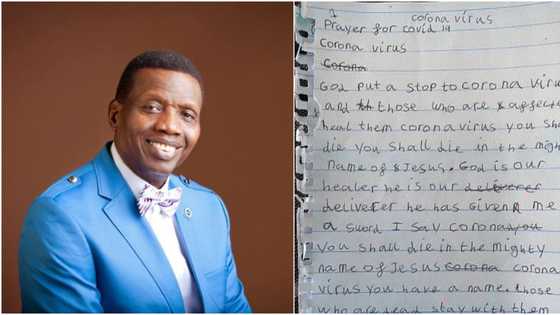 1 corona virus
Prayer for covid 19
Corona virus
Corona
God put a stop to corona viru
and th those who are affecte
heal them corona virus you sha
die you shall die in the might
name of Jesus. God is our
healer he is our deliverer
deliver he has Given me
a sword I say corona you
you shall die in the mighty
name of Jesus corona corona
virus you have a name. those
who are dead stay with them